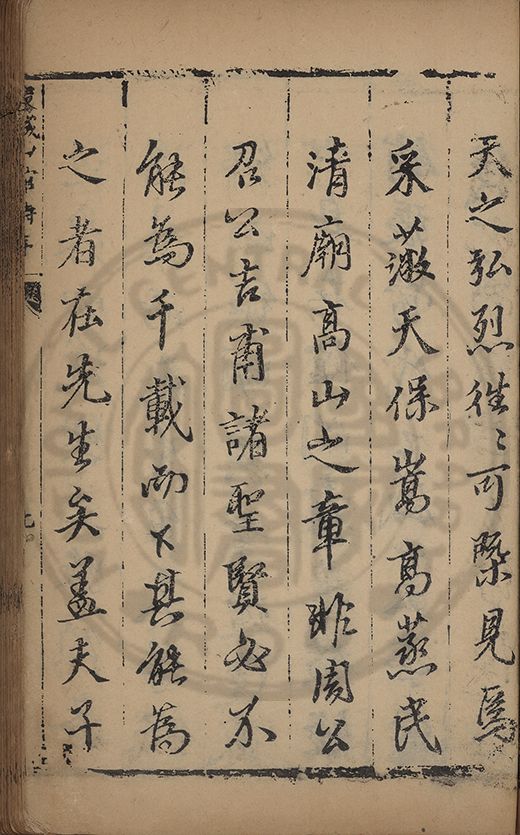 天之弘烈徃〻可槩見焉
采薇天保嵩高蒸民
清廟高山之章非周公
召公吉甫諸聖賢必不
能為千載而下其能為
之者在先生矣蓋夫子